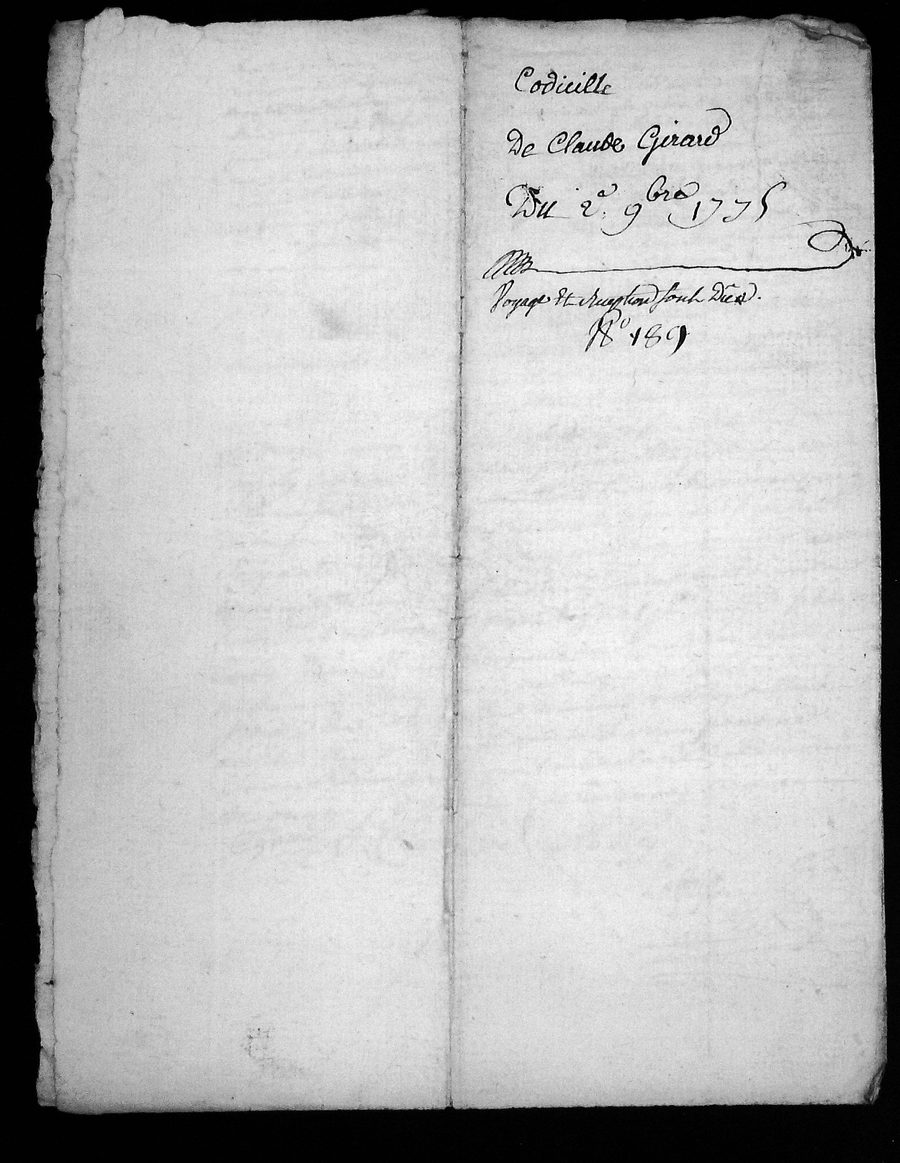 Codicille
De Claude Girard
Du 2e 9bre 1775
Voyage Et Reception sont Dûes.
No 189